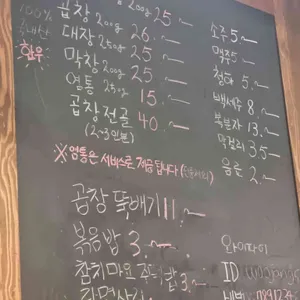 100%
국내산
한우
곱창 200g 25.—
대창 200g 26.—
막창 200g 25.—
염통 250g 15.—
곱창전골 40.—
(2~3인분)
※염통은 서비스로 제공됩니다
곱창 뚝배기 11.—
볶음밥 3.—
참치마요 주먹밥 3.—
소주 5.—
맥주 5.—
청하 5.—
백세주 8.—
복분자 13.—
막걸리 3.5—
음료 2.—
와이파이
ID